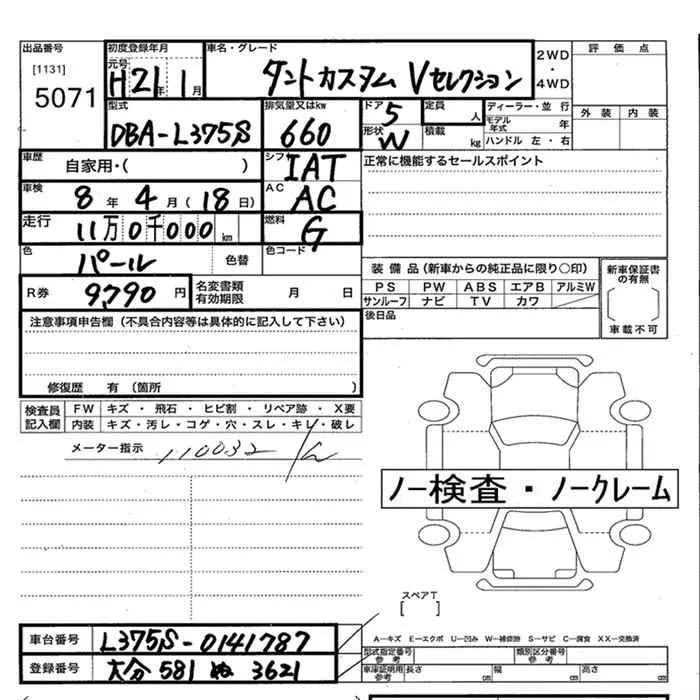 出品番号 初度登録年月 車名・グレード 2WD 評価点
[1131] 元号 ・
5071 H21年 1月 タントカスタム Vセレクション 4WD
型式 排気量又はkw ドア 定員 ディーラー・並行 外装 内装
DBA-L375S 660 5 人 モデル年式 年
形状 W 積載 kg ハンドル 左・右
車歴 自家用・( ) シフト IAT 正常に機能するセールスポイント
車検 8年 4月(18日) AC AC
走行 11万0千000km 燃料 G
色 パール 色替 色コード
装備品(新車からの純正品に限り○印) 新車保証書の有無
R券 9,790円 名変書類有効期限 月 日 PS PW ABS エアB アルミW
サンルーフ ナビ TV カワ
注意事項申告欄(不具合内容等は具体的に記入して下さい) 後日品 車載不可
修復歴 有(箇所 )
検査員記入欄 FW キズ・飛石・ヒビ割・リペア跡・X要
内装 キズ・汚レ・コゲ・穴・スレ・キレ・破レ
メーター指示 110032
ノー検査・ノークレーム
スペアT
[ ]
車台番号 L375S-0141787 A―キズ E―エクボ U―凹み W―補修跡 S―サビ C―腐食 XX―交換済
型式指定番号 参考 類別区分番号 参考
登録番号 大分 581 ぬ 3621 車庫証明用 参考 長さ cm 幅 cm 高さ cm